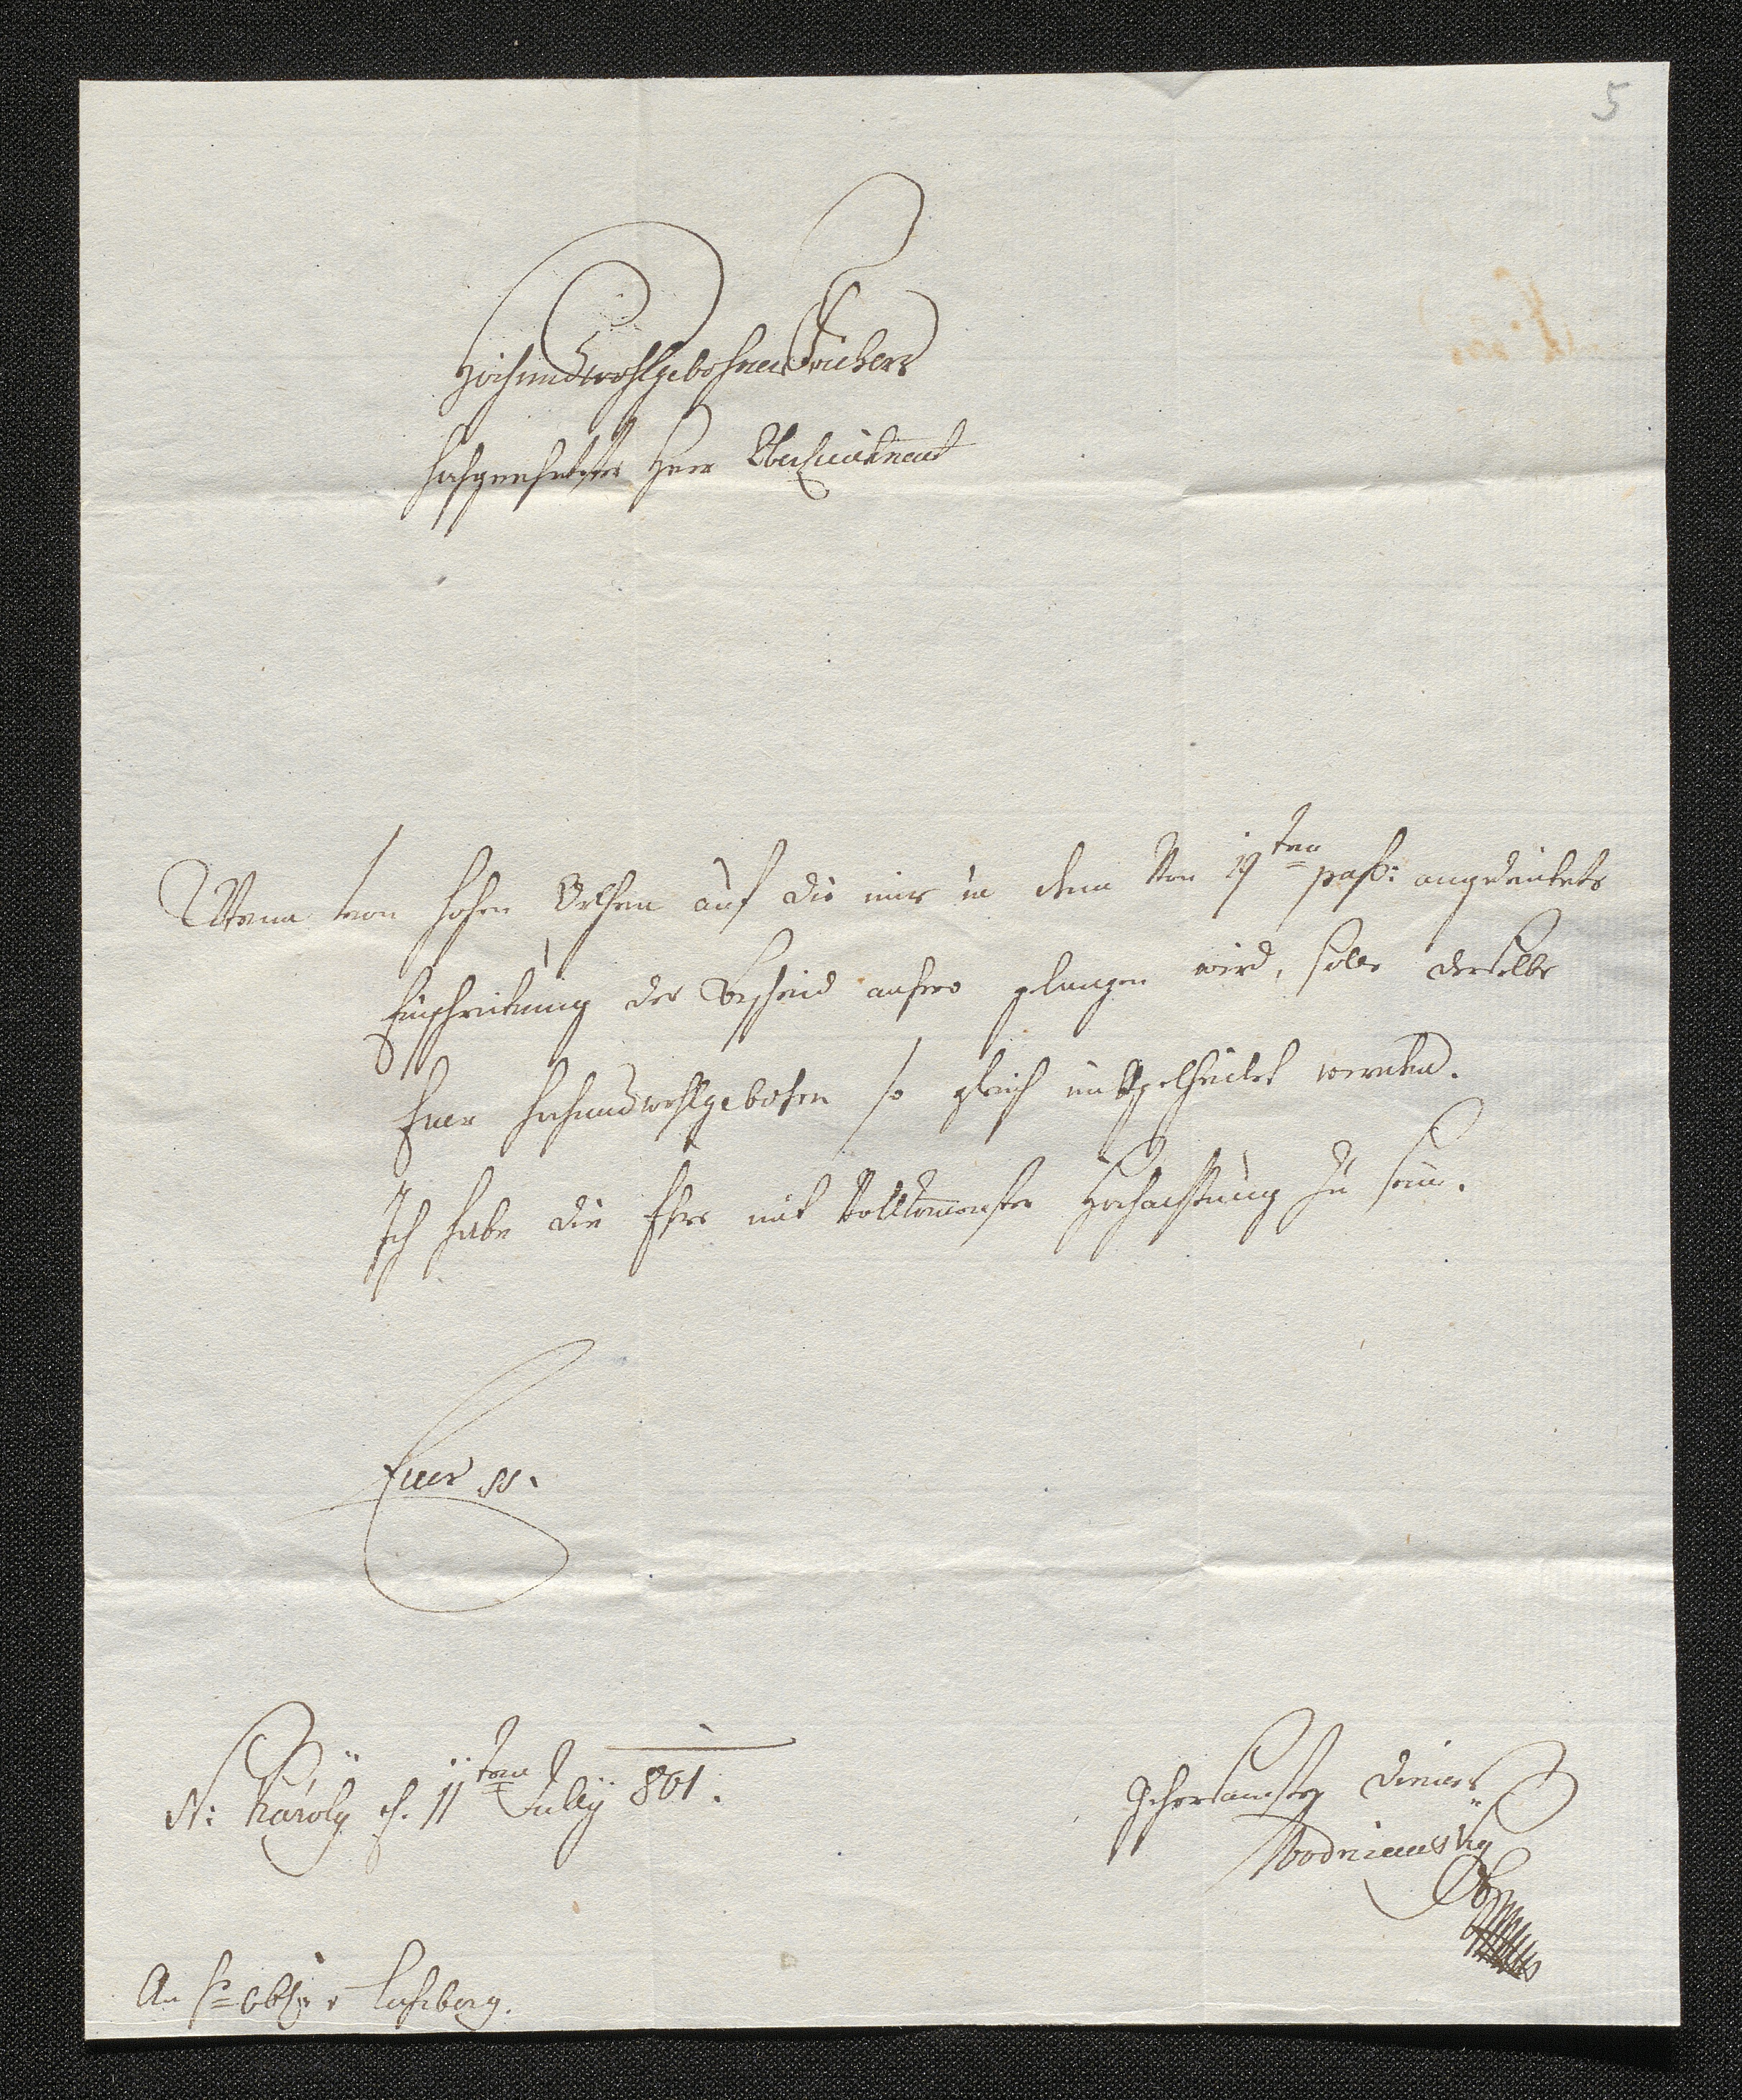 5
Hochundwohlgebohrner Freiherr
Hochgeehrtester Herr Oberleutnant
Wenn von hohen Orthen auf die mir in dem von 19ten pass: angedeutete
Einschreitung der Bescheid anhero gelangen wird, solle derselbe
Euer Hochundwohlgebohren so gleich mitgetheilet werden.
Ich habe die Ehre mit vollkomenster Hochachtung zu sein.
Euer
N: Karoly d. 11ten July 801.
gehorsamster Diener
Wodniansky
An H: Obl: v Lusberg.